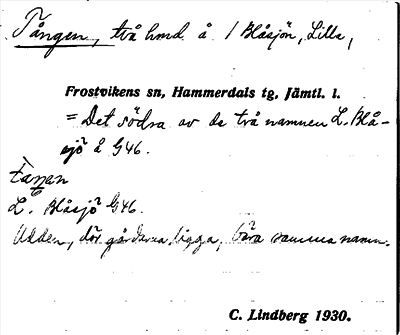 Tången, två hmd å / Blåsjön, Lilla,
Frostvikens sn, Hammerdals tg, Jämtl. l.
= Det södra av de två namnen L. Blå-
sjö å G46.
L. Blåsjö G46.
Udden, där gårdarna ligga, bära samma namn.
C. Lindberg 1930.